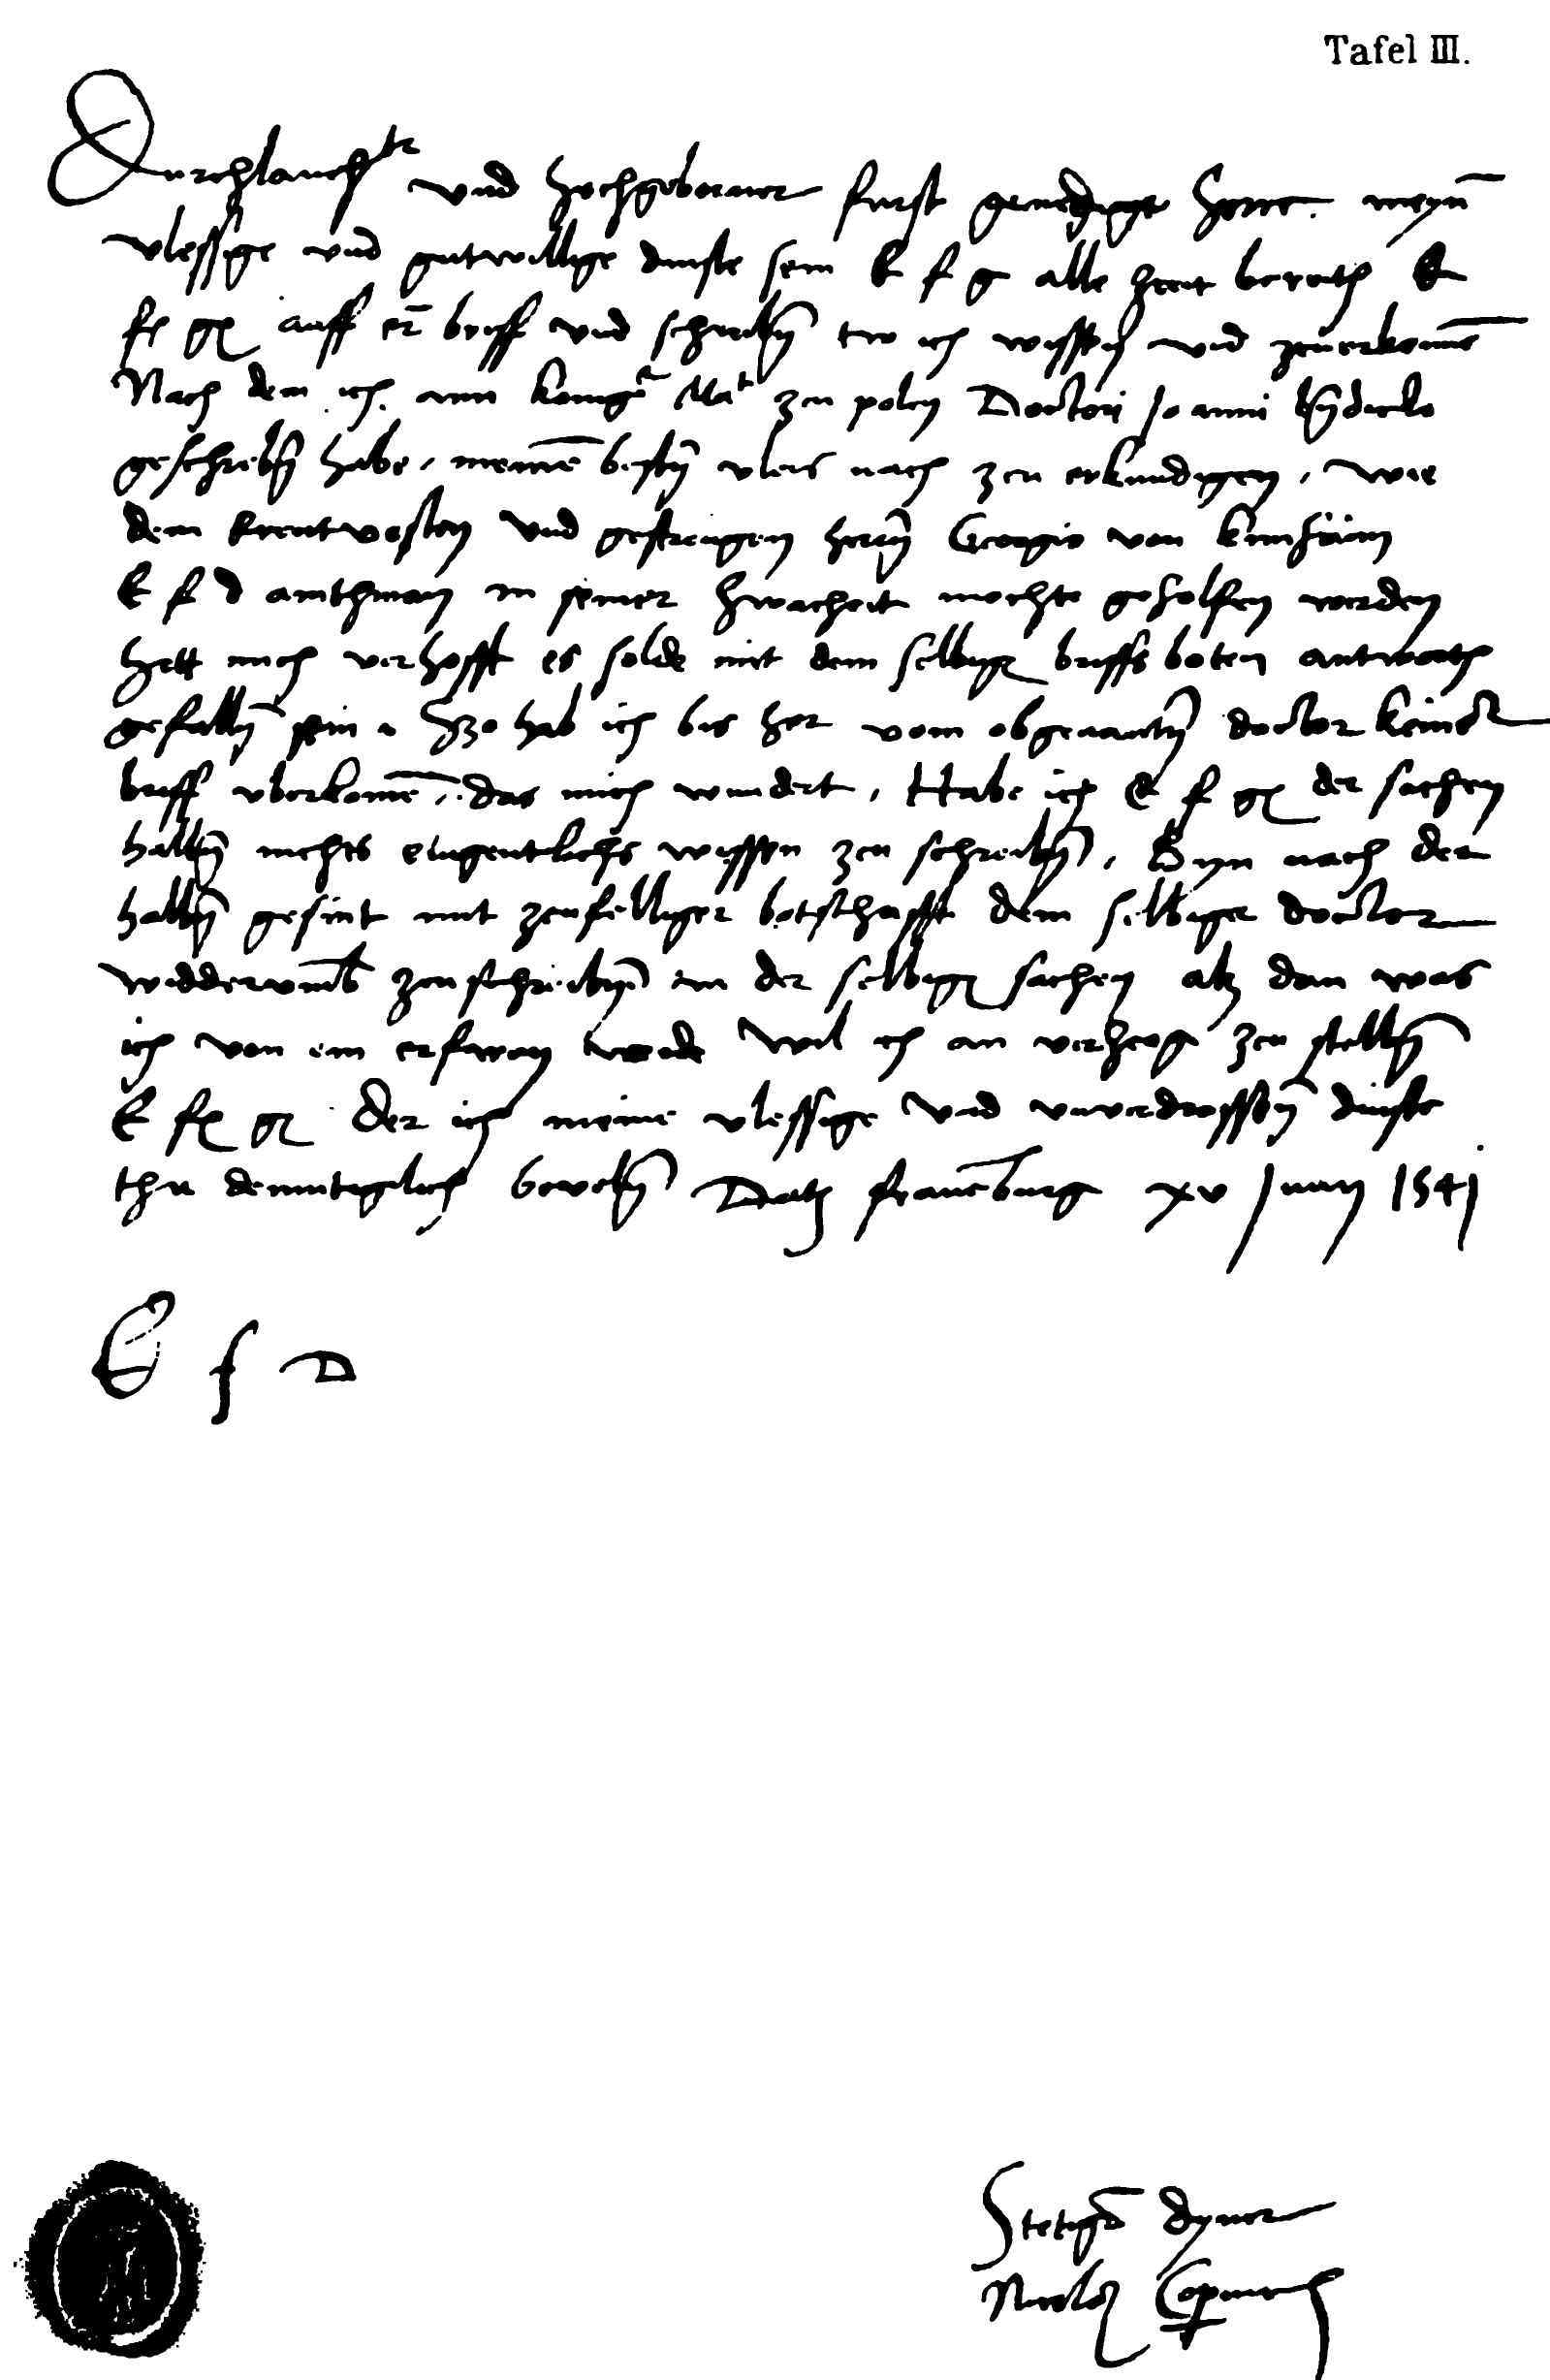 Tafel III.
Durchlauchtr vnd hochgeborner furst genedigte herre. meyn̄
vlessige vnd gutwillige dinste sein E f g alle zceit bereith E
f g auff er̄ briff vnd schreibn̄ tw ich wissen vnd zcuerkennē
Nach dem ich. ann konigr Mat zcu polen Doctori Joanni
geschrebn̄ habe, meinē bestn̄ vleis nach zcu erkundigen, wie
dem Erentvesten vnd gestrengen hern̄ Georgio von Kunhaim
E f d amthman in seiner swacheit mochte geholfen werden
hett mich verhofft es solde mit dem selbigen briffs boten antworth
gefalln̄ sein. Szo hab ich bis her vom obgenantn̄ doctor keinen
briff vberkomē, das mich wundert, Habe ich E f g der sachen
halbn̄ nichts eingentlichs wissen zcu schreibn̄, Byn nach der
halbn̄ gesint mit zcufelliger botschafft dem selbiger doctor
widdervmb zcuschreibn̄ in der selbigen sachen alz dan was
ich von em erfaren werde wil ich an verzcog zcu stelln̄
E f g Der ich meine vlessige vnd vnverdrossen̄ dinste
thu demutiglich beveln̄ Datz fraunburg xv Junij 1541
E f D
Stetiger dyner
Nicolaus Copernicus